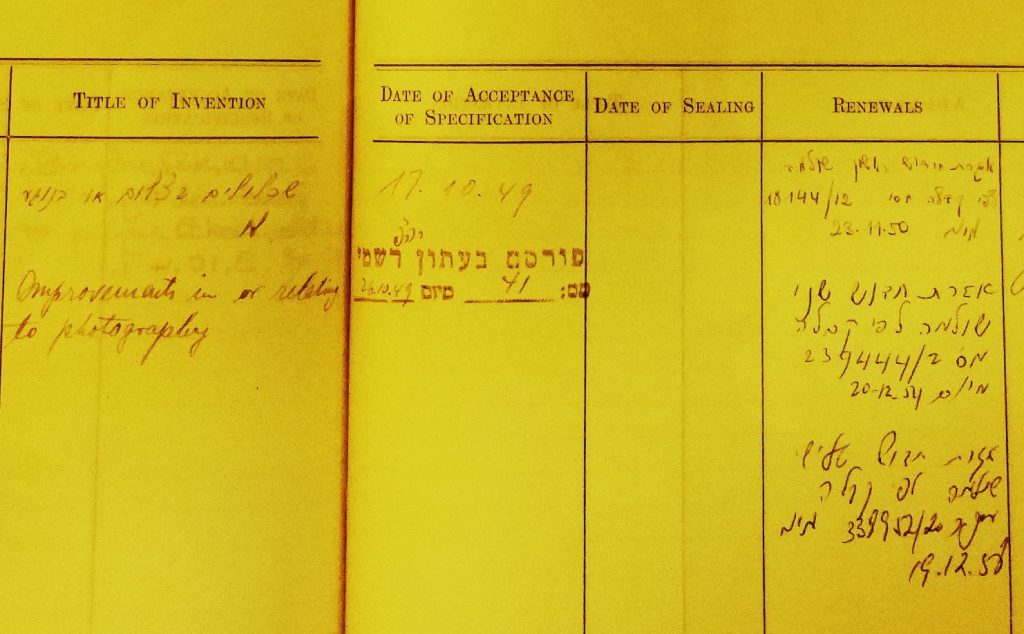 TITLE OF INVENTION
DATE OF ACCEPTANCE
OF SPECIFICATION
DATE OF SEALING
RENEWALS
שכלולים בצלום או בנוגע
Improvements in or relating
to photography
17. 10. 49
פורסם בעתון רשמי
מס: 41 מיום 26.10.49
אגרת חדוש ראשון שולמה
לפי קבלה מס 18144/12
מיום 23.11.50
אגרת חדוש שני
שולמה לפי קבלה
מס 239444/2
מיום 20-12-54
אגרת חדוש שלישי
שולמה לפי קבלה
339952/20 מיום
19.12.58